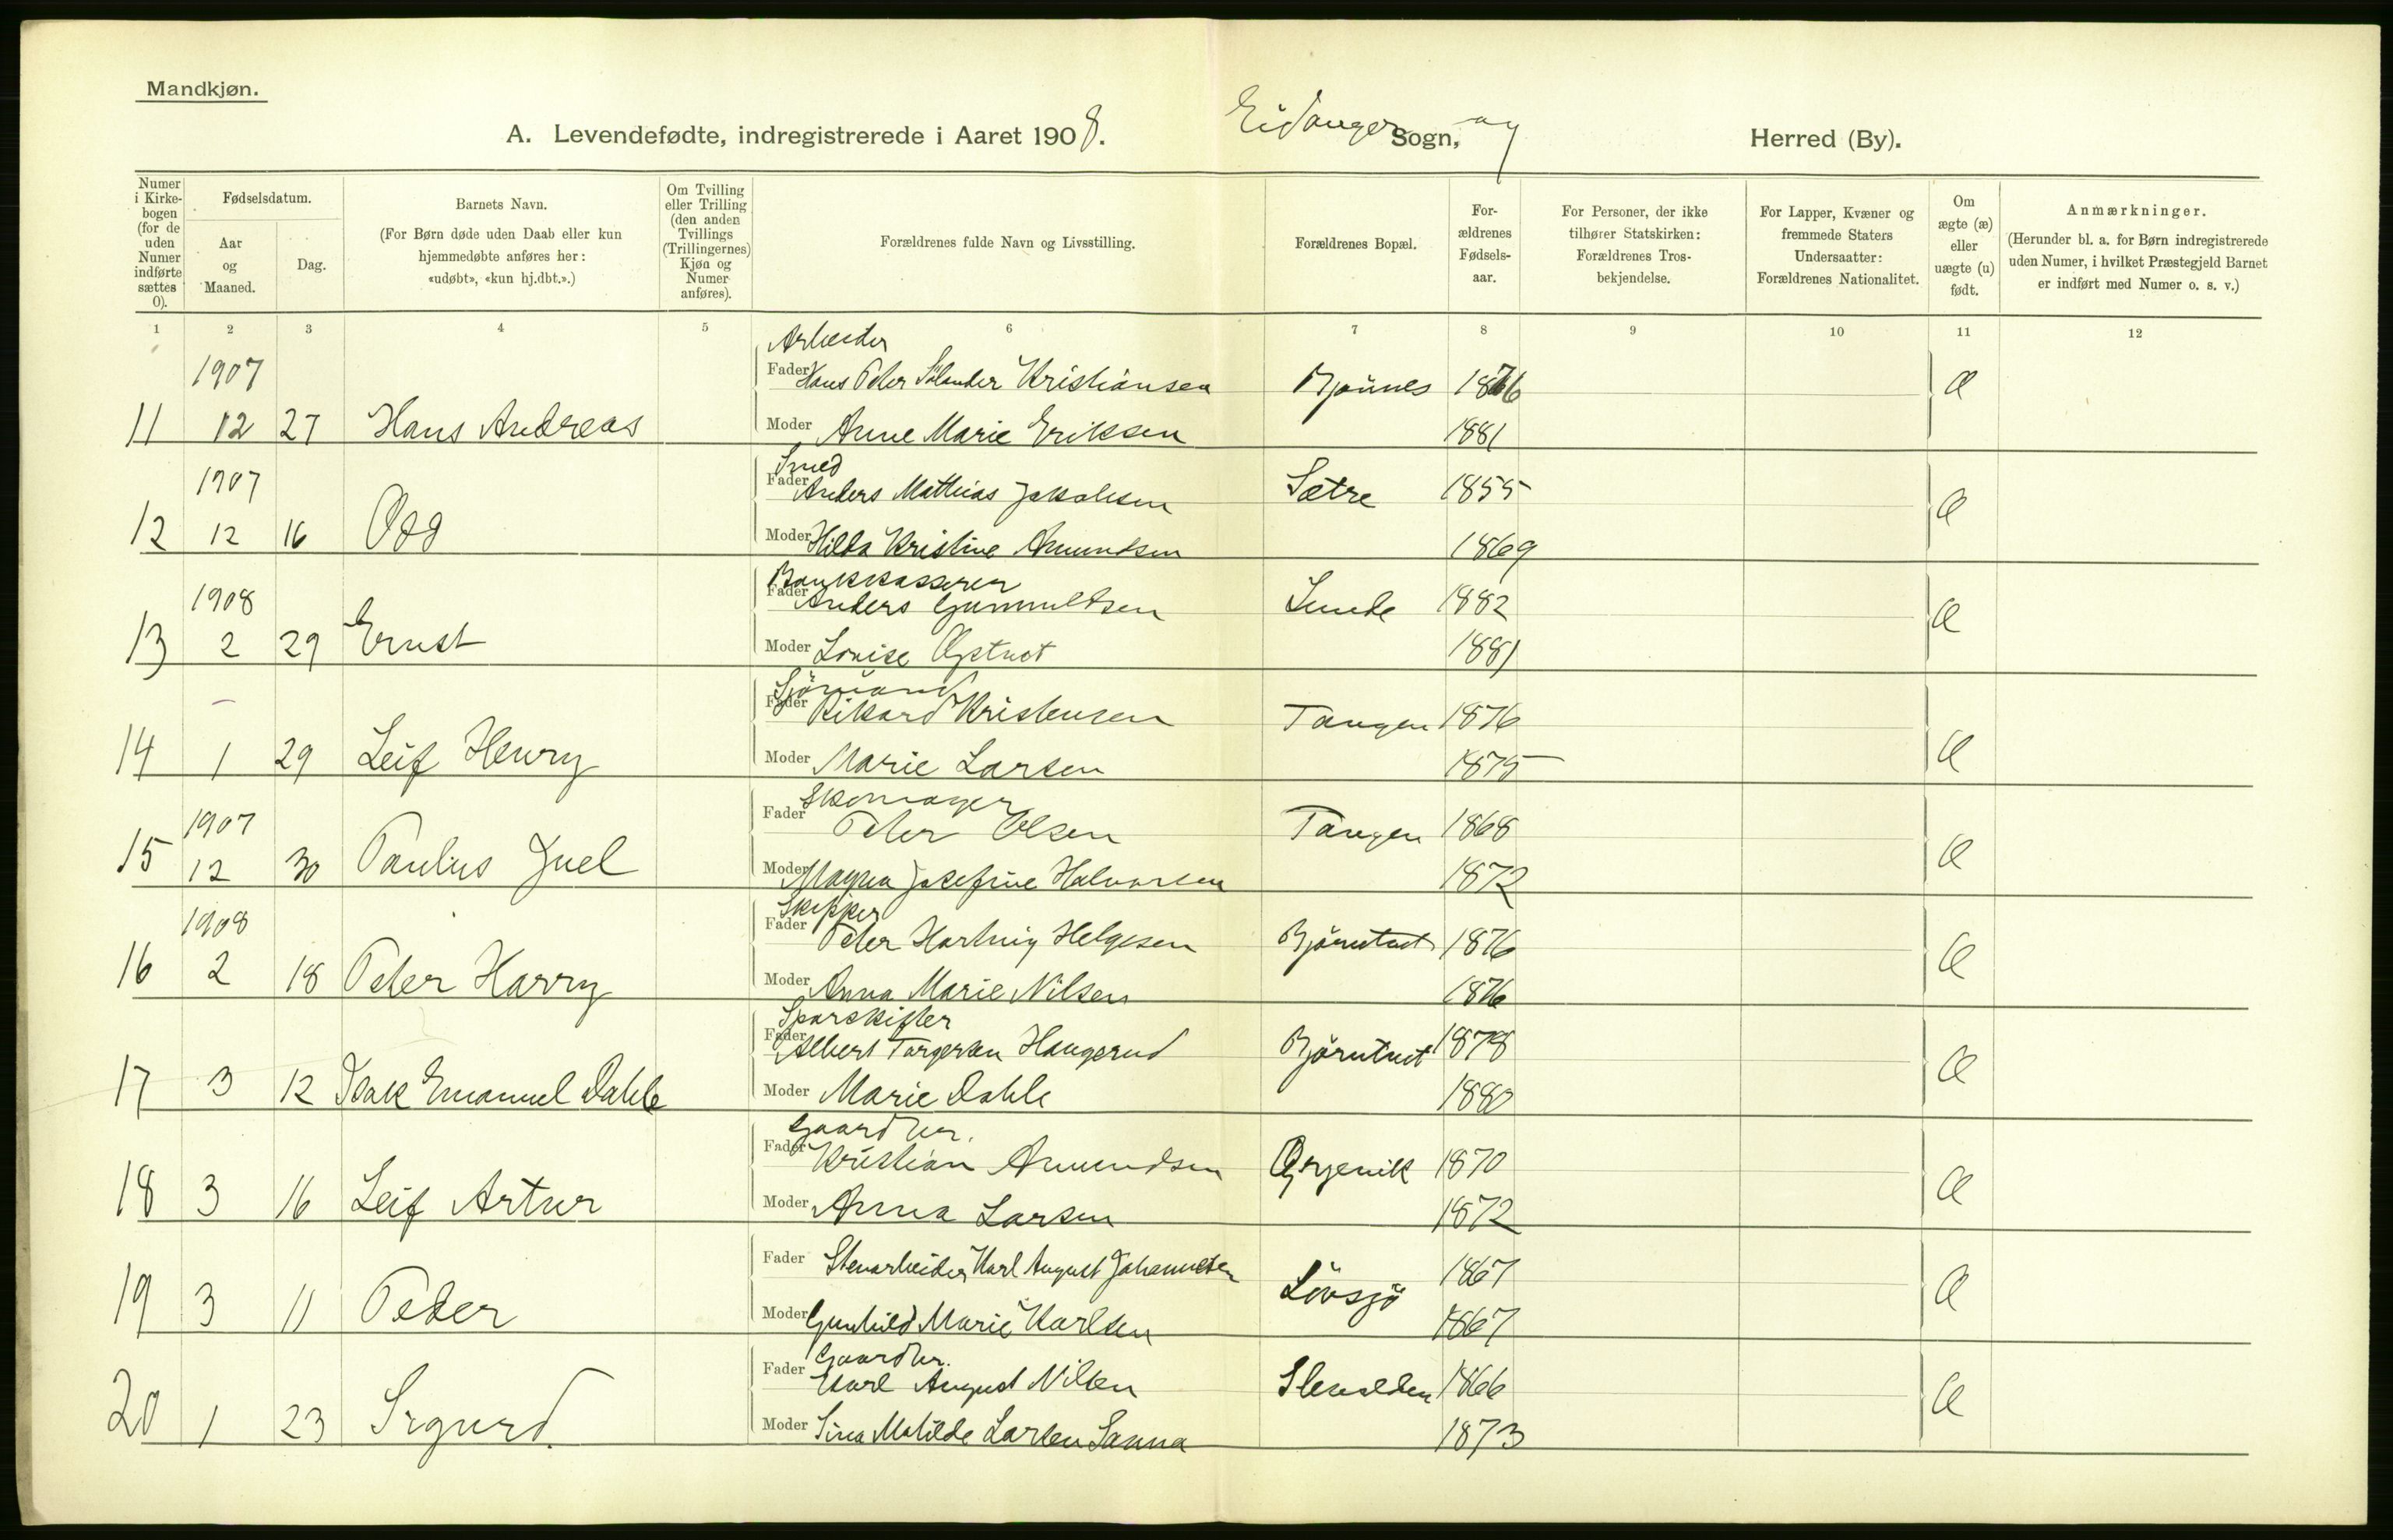 Mandkjøn.
A. Levendefødte, indregistrerede i Aaret 1908. Eidanger Sogn, og Herred (By).
Numer i Kirkebogen (for de uden Numer indførte sættes 0).
Fødselsdatum.
Aar og Maaned.
Dag.
Barnets Navn.
(For Børn døde uden Daab eller kun hjemmedøbte anføres her: «udøbt», «kun hj.dbt.».)
Om Tvilling eller Trilling (den anden Tvillings (Trillingernes) Kjøn og Numer anføres).
Forældrenes fulde Navn og Livsstilling.
Forældrenes Bopæl.
Forældrenes Fødselsaar.
For Personer, der ikke tilhører Statskirken: Forældrenes Trosbekjendelse.
For Lapper, Kvæner og fremmede Staters Undersaatter: Forældrenes Nationalitet.
Om ægte (æ) eller uægte (u) født.
Anmærkninger.
(Herunder bl. a. for Børn indregistrerede uden Numer, i hvilket Præstegjeld Barnet er indført med Numer o. s. v.)
1 2 3 4 5 6 7 8 9 10 11 12
Arbeider
1907 Fader Hans Peter Kristiansen Bjønnes 1876 Æ
11 12 27 Hans Andreas Moder Anne Marie Eriksen 1881
Smed
1907 Fader Anders Mathias Jakobsen Sætre 1855 Æ
12 12 16 Odd Moder Hilda Kristine Amundsen 1869
Bankkasserer
1908 Fader Anders Gunnulfsen Lunde 1882 Æ
13 2 29 Ernst Moder Lovise Opstvet 1881
Sjømand
Fader Rikard Kristensen Tangen 1876
14 1 29 Leif Henry Moder Marie Larsen 1875 Æ
Skomager
1907 Fader Peter Olsen Tangen 1868
15 12 30 Paulus Juel Moder Magna Josefine Halvorsen 1872 Æ
Skipper
1908 Fader Peter Hartvig Helgesen Bjørntvet 1876
16 2 18 Peter Harry Moder Anna Marie Nilsen 1876 Æ
Sporskifter
Fader Albert Torgersen Haugerud Bjørntvet 1878
17 3 12 Isak Emanuel Dahle Moder Marie Dahle 1880 Æ
Gaardbr.
Fader Kristian Amundsen Ørvik 1870
18 3 16 Leif Artur Moder Anna Larsen 1872 Æ
Fader Stenarbeider Karl August Johannesen Lövsjö 1867
19 3 11 Peder Moder Gunhild Marie Karlsen 1867 Æ
Gaardbr.
Fader Karl August Nilsen 1866
20 1 23 Sigurd. Moder Sina Matilde Larsen Sanna 1873 Æ